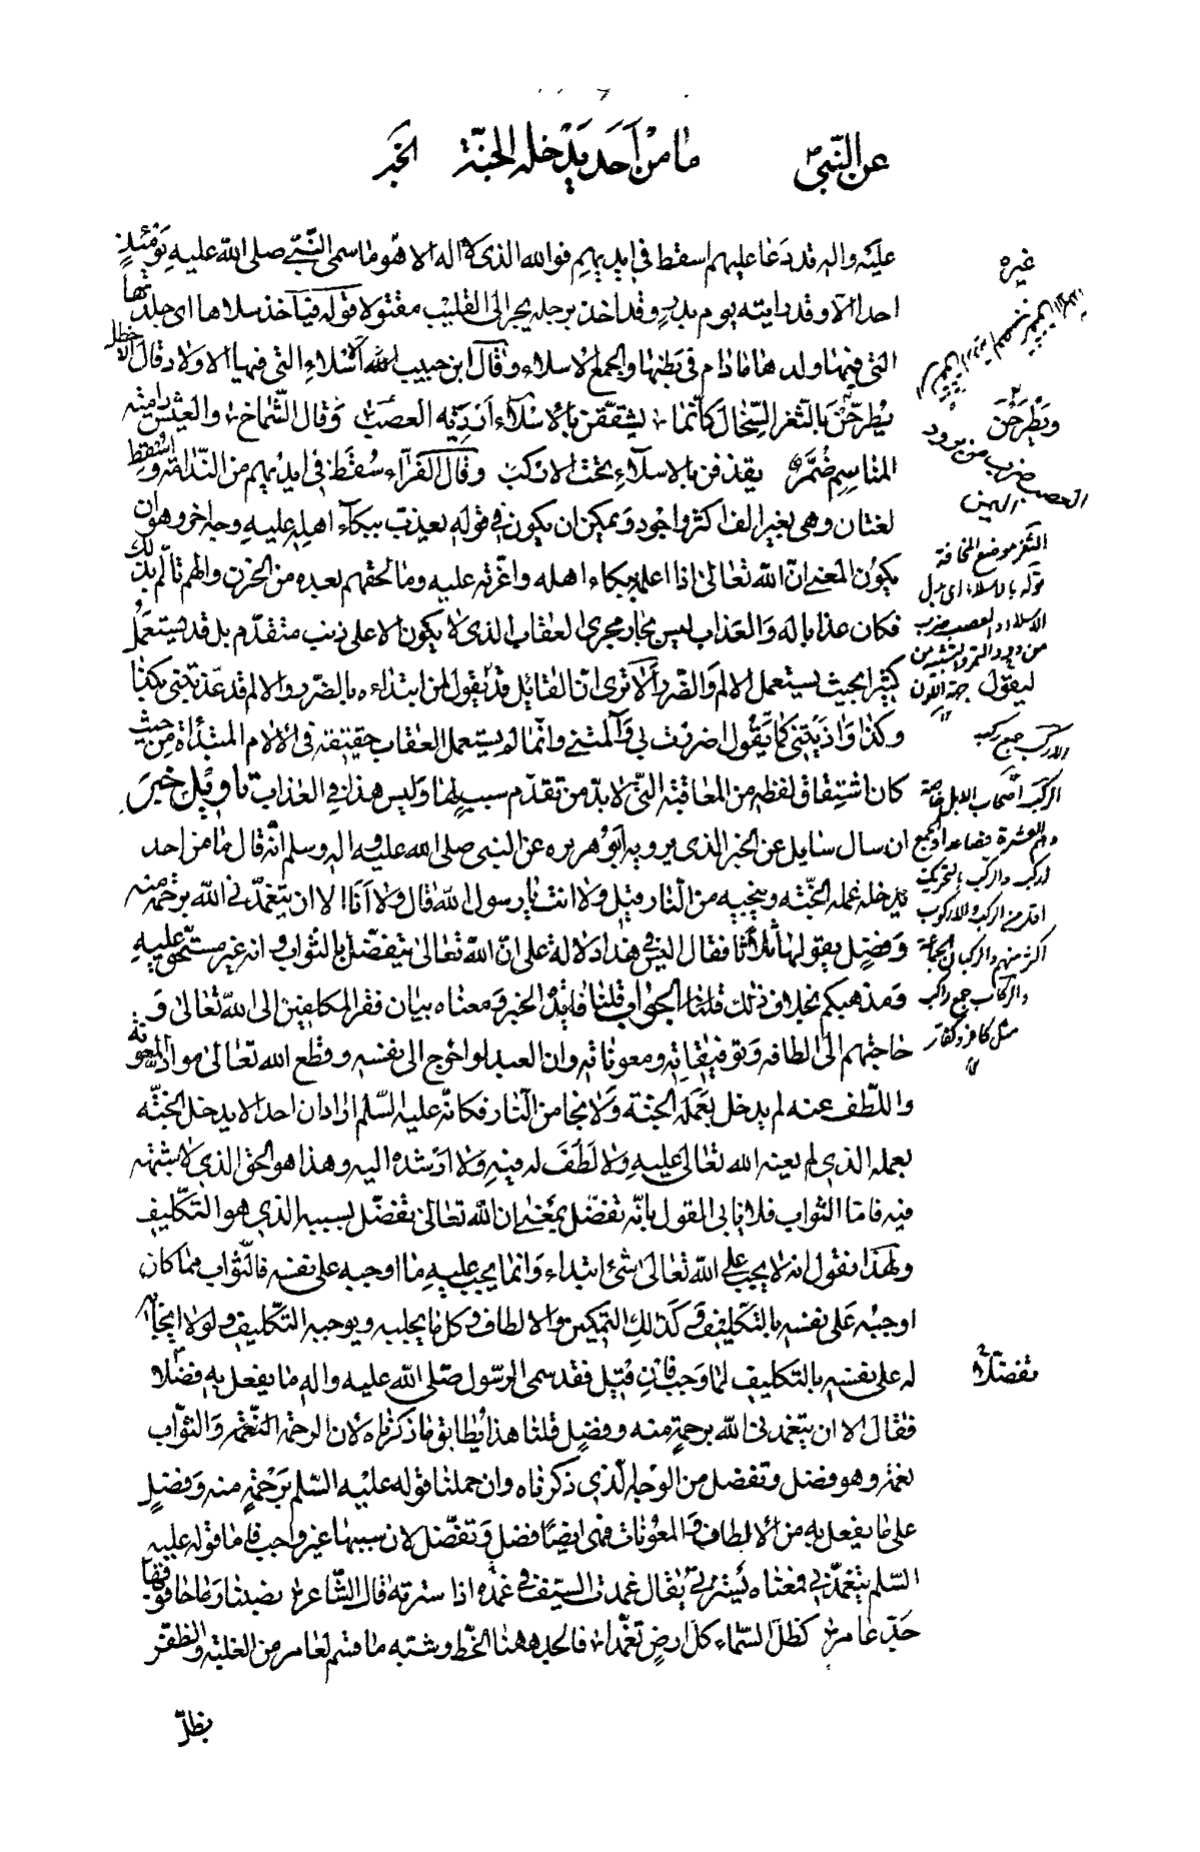 عن النّبيّ ما من أحد يدخله الجنّة الخبر
عليه واله قد دعا عليهم اسقط في ايديهم فوالله الذي لا اله الا هو ما سمى النّبيّ صلى الله عليه يومئذٍ
احدا الا وقد رايته يوم بدرٍ وقد اخذ برجله يجر الى القليب مقتولا قوله فيأخذ سلاها اى جلدتها
التى فيها ولدها ما دام في بطنها والجمع الاسلاء وقال ابن حبيب الاسْلاءِ التى فيها الاولاد قال الاخطل
يُطرحْنَ بالثّغر السِّخالَ كأنّما يشقّقن بالاسْلآء أَردِيَه العصَب وقال الشّماخ والعيس دامية
المناسِم ضُمَّرٌ يقذفن بالاسلآءِ تحت الاركبَ وقال الفرّآء سُقط في ايديهم من النّدامة واُسقط
لغتان وهى بغير الف اكثر واجود ويمكن ان يكون في قوله يعذب ببكآء اهله عليه وجه اخر وهو ان
يكون المعنى انّ الله تعالى اذا اعلمه ببكاء اهله واعزّته عليه وما لحقهم بعده من الحزن والهم تألّم بذلك
فكان عذابا له والعذاب ليس بجار مجرى العقاب الذي لا يكون الا على ذنب متقدّم بل قد يستعملُ
كثيرا بحيث يستعمل الالم والضّرر ألا ترى انّ القائل قد يقول لمن ابتداءه بالضّرر والالم قد عذّبتنى بكذا
وكذا واذيتنى كما يقول اضررت بي وآلمتنى وانّما لم يستعمل العقاب حقيقة في الالام المبتدأة من حيث
كان اشتقاق لفظه من المعاقبة التى لا بدّ من تقدّم سببٍ لها وليس هذا في العذاب تاويل خبر
ان سال سايل عن الخبر الذى يرويه ابو هريره عن النبى صلى الله عليه واله وسلم انّه قال ما من احد
يدخله عمله الجنّة وينجيه من النّار قيل ولا انت يا رسول الله قال ولا انا الا ان يتغمّدنى الله برحمة منه
وفضلٍ يقولها ثلاثا فقال اليس في هذا دلالة على انّ الله تعالى يتفضل بالثواب وانه غير مستحق عليه
ومذهبكم بخلاف ذلك قلنا الجواب قلنا فايدة الخبر ومعناه بيان فقر المكلفين الى الله تعالى و
حاجتهم الى الطافه وتوفيقاته ومعوناته وان العبد لو اخرج الى نفسه وقطع الله تعالى مواد المعونة
واللّطف عنه لم يدخل بعمله الجنة ولا نجا من النّار فكانّه عليه السّلم اراد ان احدا لا يدخل الجنّه
بعمله الذي لم يعنه الله تعالى عليه ولا لَطَفَ له فيه ولا ارشده اليه وهذا هو الحق الذي لا شبهة
فيه فامّا الثواب فلا نابى القول بانّه تفضّل بمعنى ان الله تعالى تفضّل بسببه الذي هو التكليف
ولهذا نقول انه لا يجب على الله تعالى شئ ابتداء وانما يجب عليه ما اوجبه على نفسه فالثّواب مما كان
اوجبه على نفسه بالتكليف وكذلك التمكين والالطاف وكل ما يجلبه ويوجبه التكليف ولولا ايجابه
له على نفسه بالتكليف لما وجب فان قيل فقد سمى الرسول صلى الله عليه واله ما يفعل به فضلا
فقال الا ان يتغمدنى الله برحمةٍ منه وفضلٍ قلنا هذا يطابق ما ذكرناه لان الرحمة النّعمة والثّواب
نعمة وهو فضل وتفضل من الوجه الّذي ذكرناه وان حملنا قوله عليه السّلم برحمةٍ منه وفضلٍ
على ما يفعل به من الالطاف والمعونات فهى ايضًا فضل وتفضّل لان سببها غير واجب فاما قوله عليه
السّلم يتغمّدني فمعناه يسترنى يقال غمدت السّيف في غمده اذا سترته قال الشّاعر نصبنا رماحا فوقها
جدّ عامر كظلّ السّماء كل ارضٍ تغمّدا فالجد ههنا الحّظ وشبّه ما قسم لعامر من الغلبة والظفر
بظلّ
غيره
ويُطْرَحْنَ
العصب ضرب من برود
اليمن
الثّغر موضع المخافة
قوله بالاسلاء اى بدل
ليقول
الاركب جمع ركب
الركب اصحاب الابل خاصة
والركاب جمع راكب
مثل كافر وكفار
تفضّلا